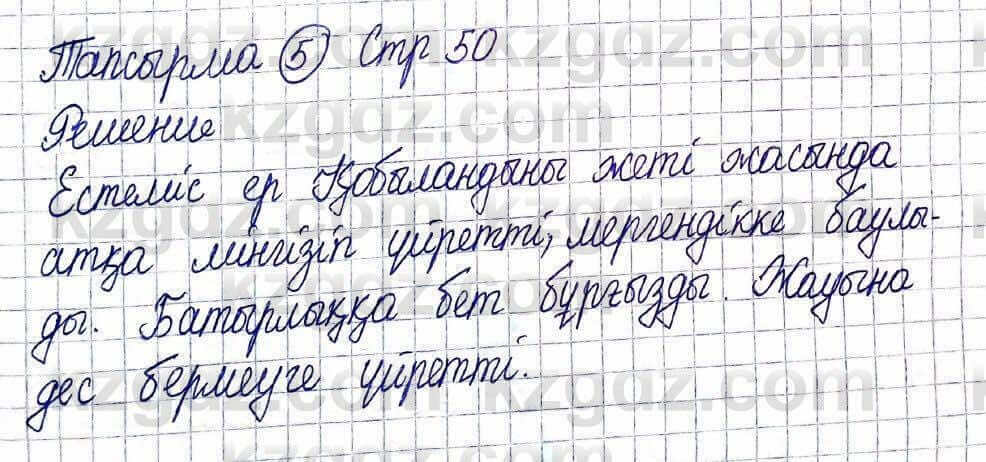 Тапсырма 5 Стр 50
Решение
Естеміс ер Қобыландыны жеті жасында
атқа мінгізіп үйретті, мергендікке баулы-
ды. Батырлыққа бет бұрғызды. Жауына
дес бермеуге үйретті.